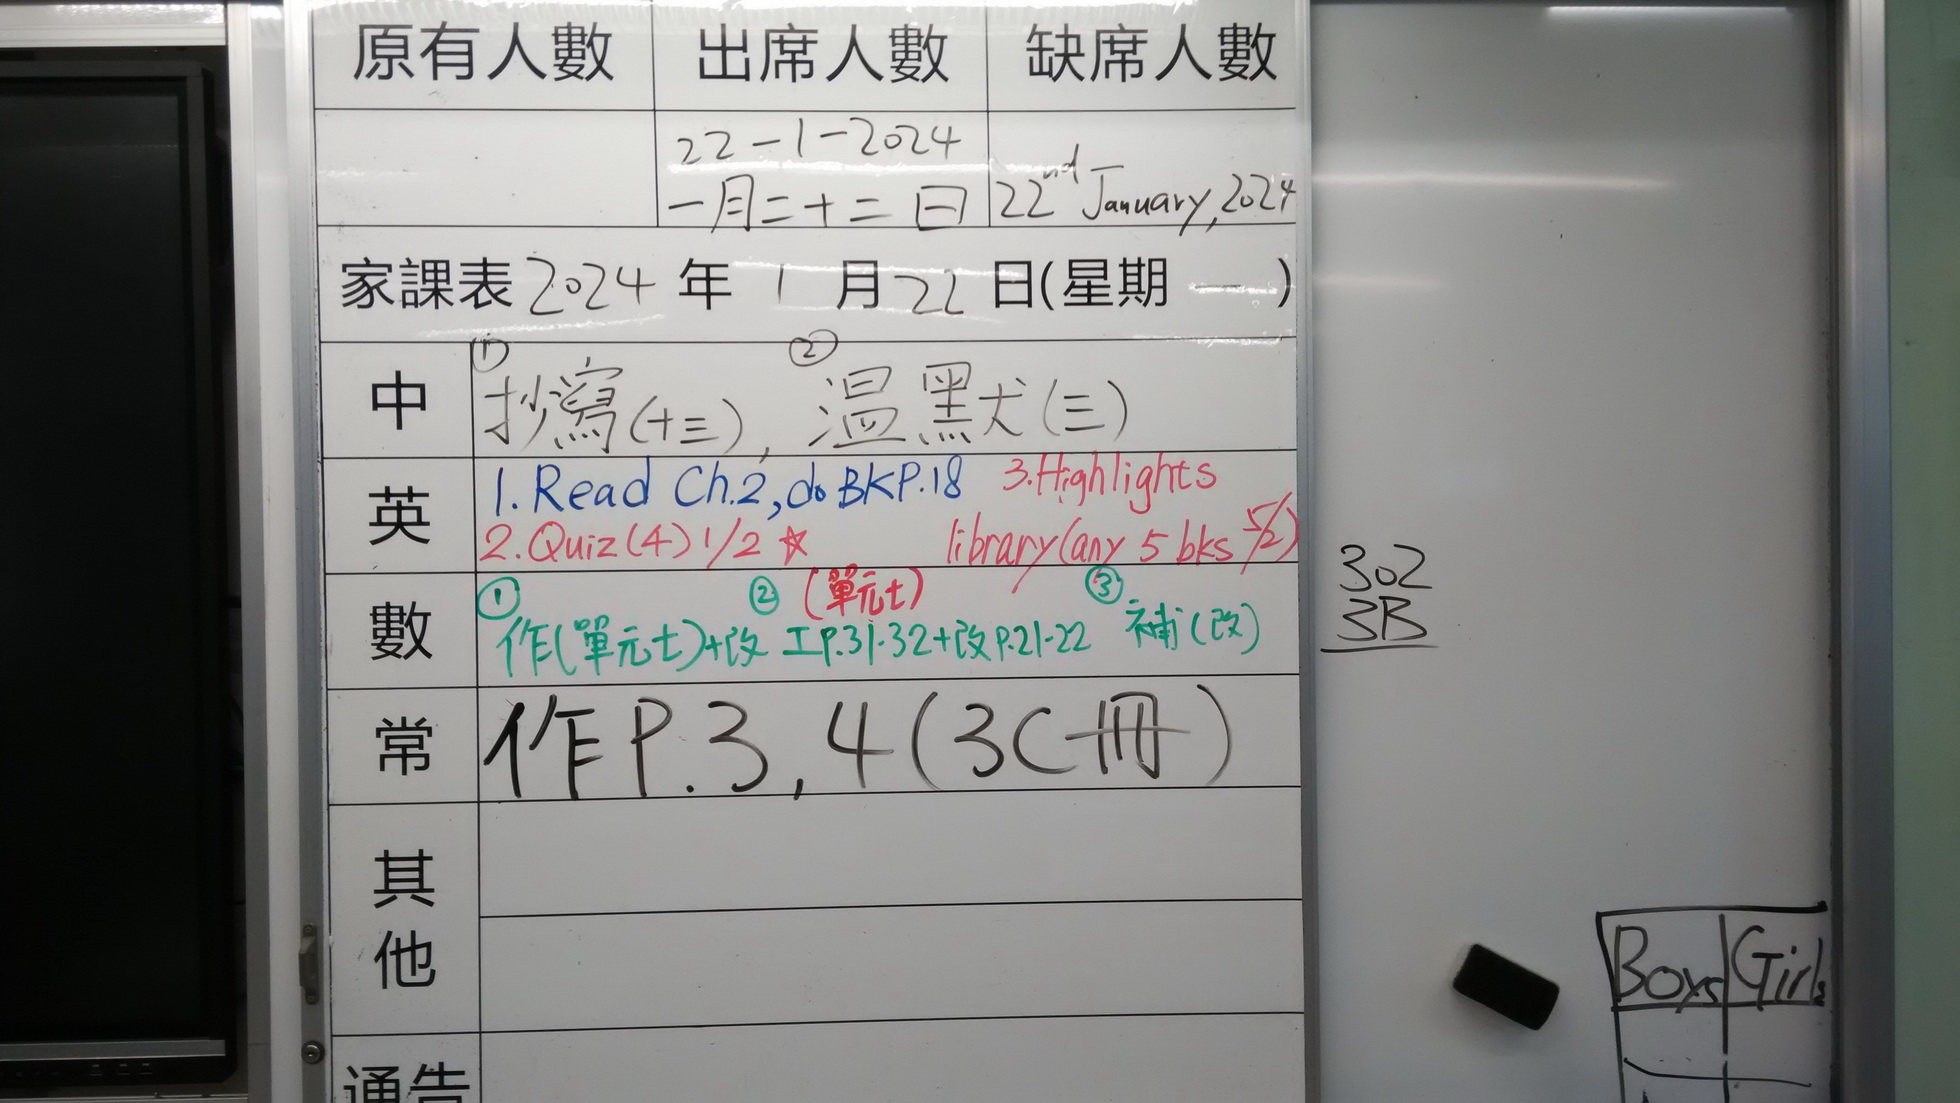 原有人數 出席人數 缺席人數
22-1-2024
一月二十二日 22nd January, 2024
家課表 2024 年 1 月 22 日(星期 一 )
中 ① 抄寫(十三), ② 溫默(三)
英 1. Read Ch.2, do BKP.18 3. Highlights
2. Quiz(4) 1/2 ☆ library (any 5 bks 5/2)
數 ① 作(單元七)+改 ② (單元七) 工P.31-32+改P.21-22 ③ 補(改)
常 作P.3,4(3C冊)
其他
通告
302
3B
Boys Girls